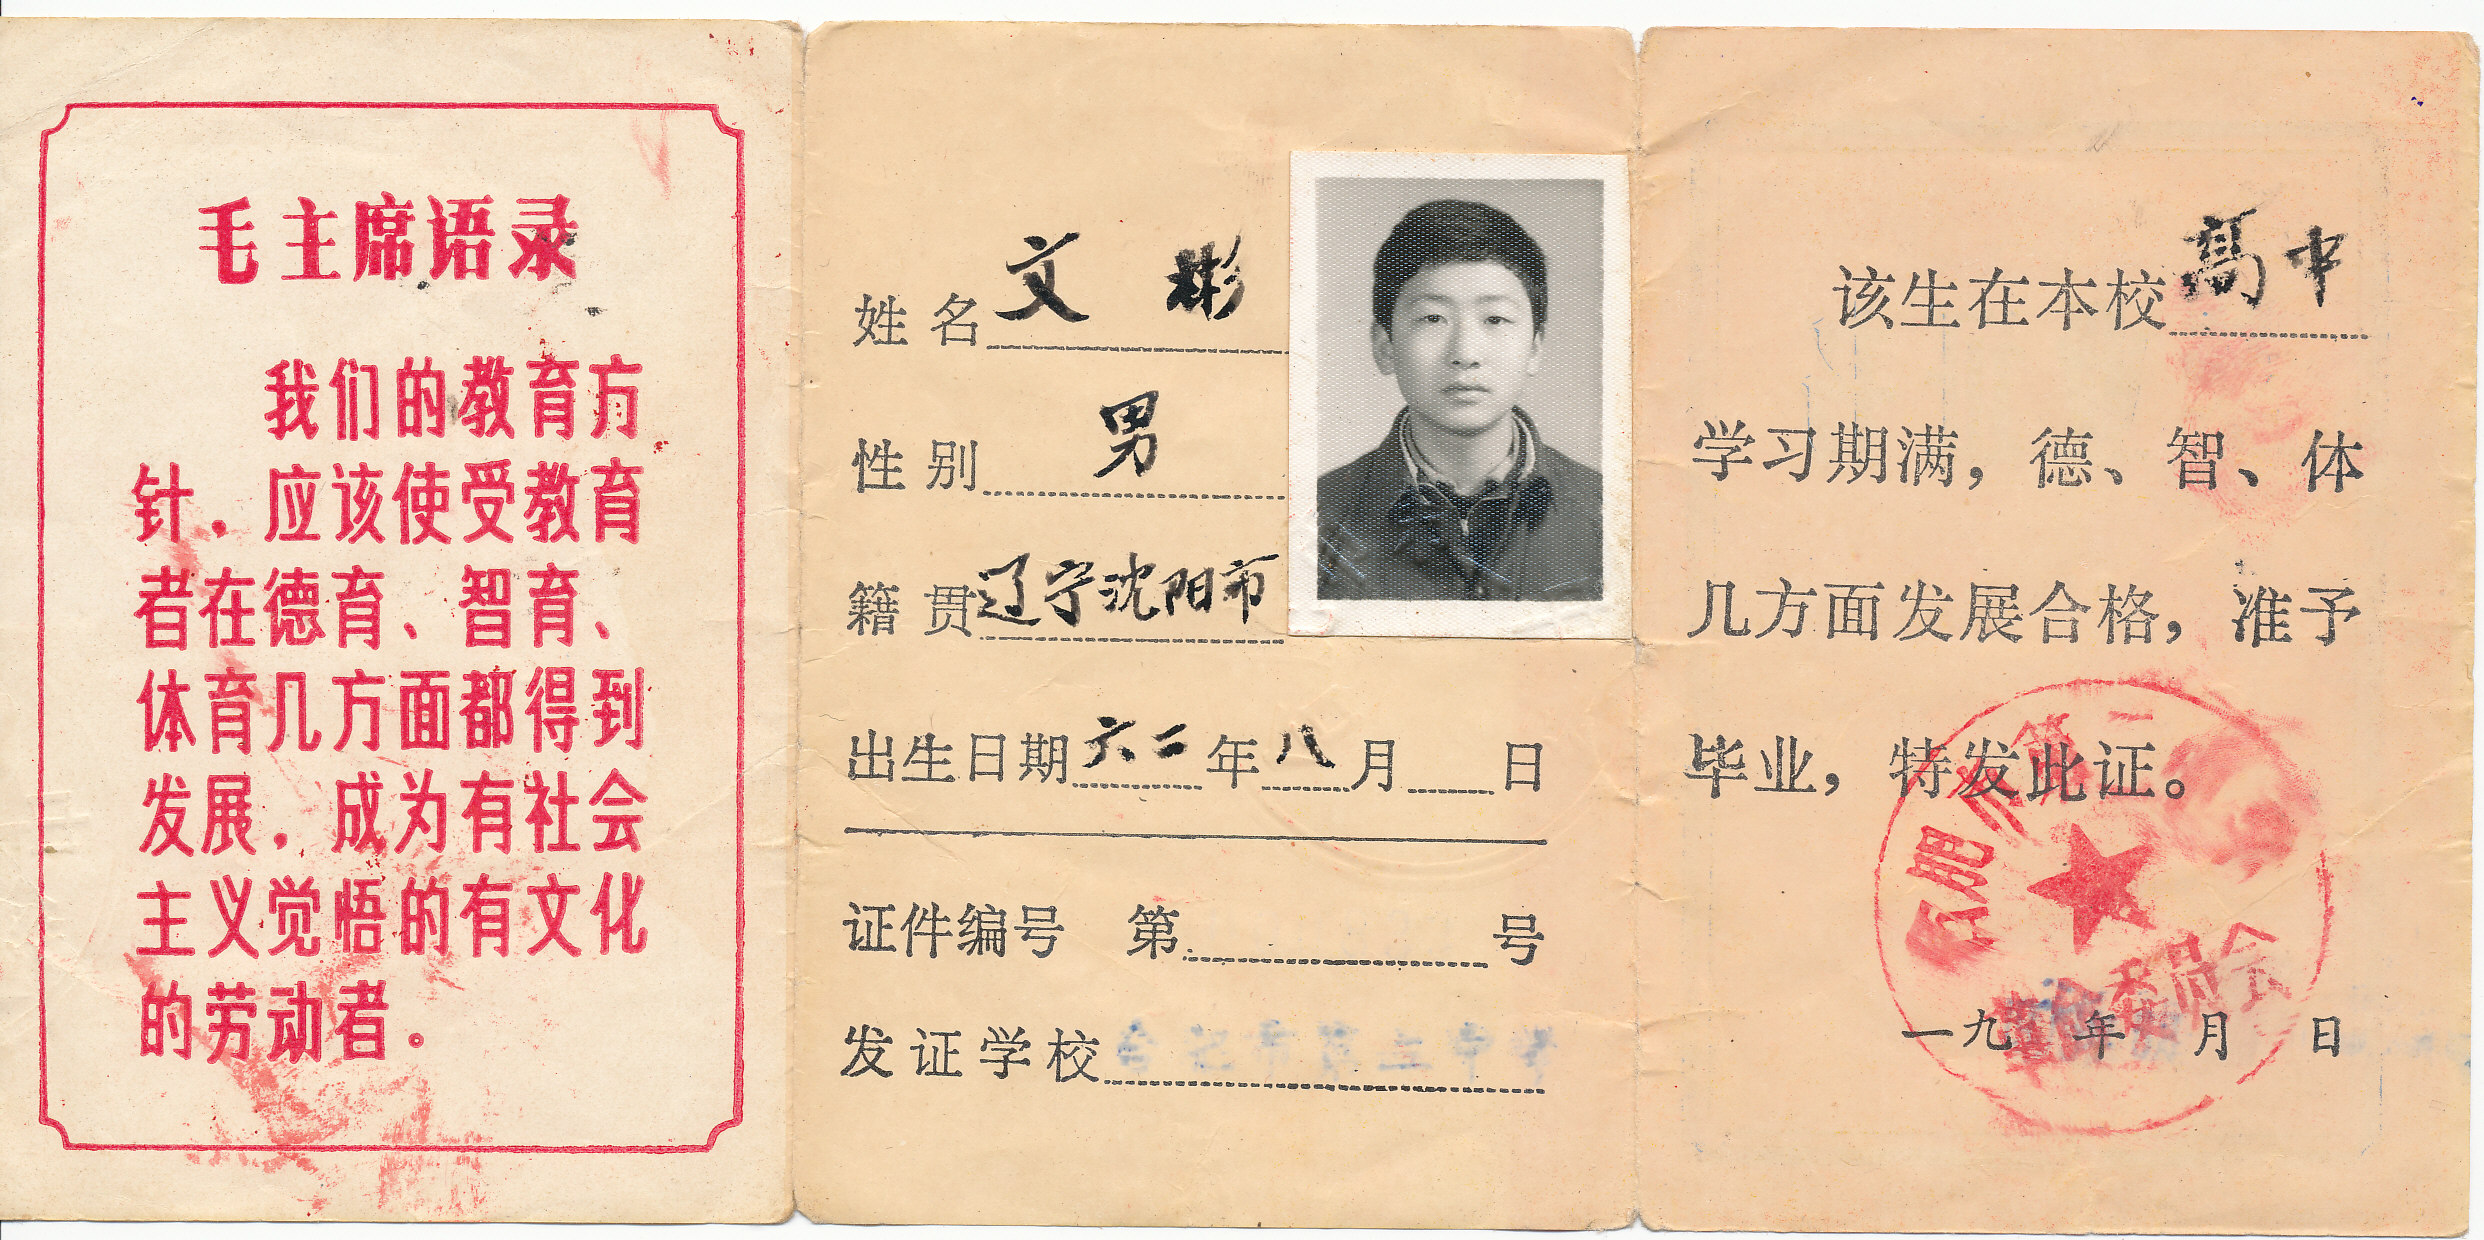 毛主席语录
我们的教育方
针，应该使受教育
者在德育、智育、
体育几方面都得到
发展，成为有社会
主义觉悟的有文化
的劳动者。
姓名 文彬
性别 男
籍贯 辽宁沈阳市
出生日期 六二年八月 日
证件编号 第 号
发证学校
该生在本校高中
学习期满，德、智、体
几方面发展合格，准予
毕业，特发此证。
肥市第二
革命委员会
一九 年 月 日